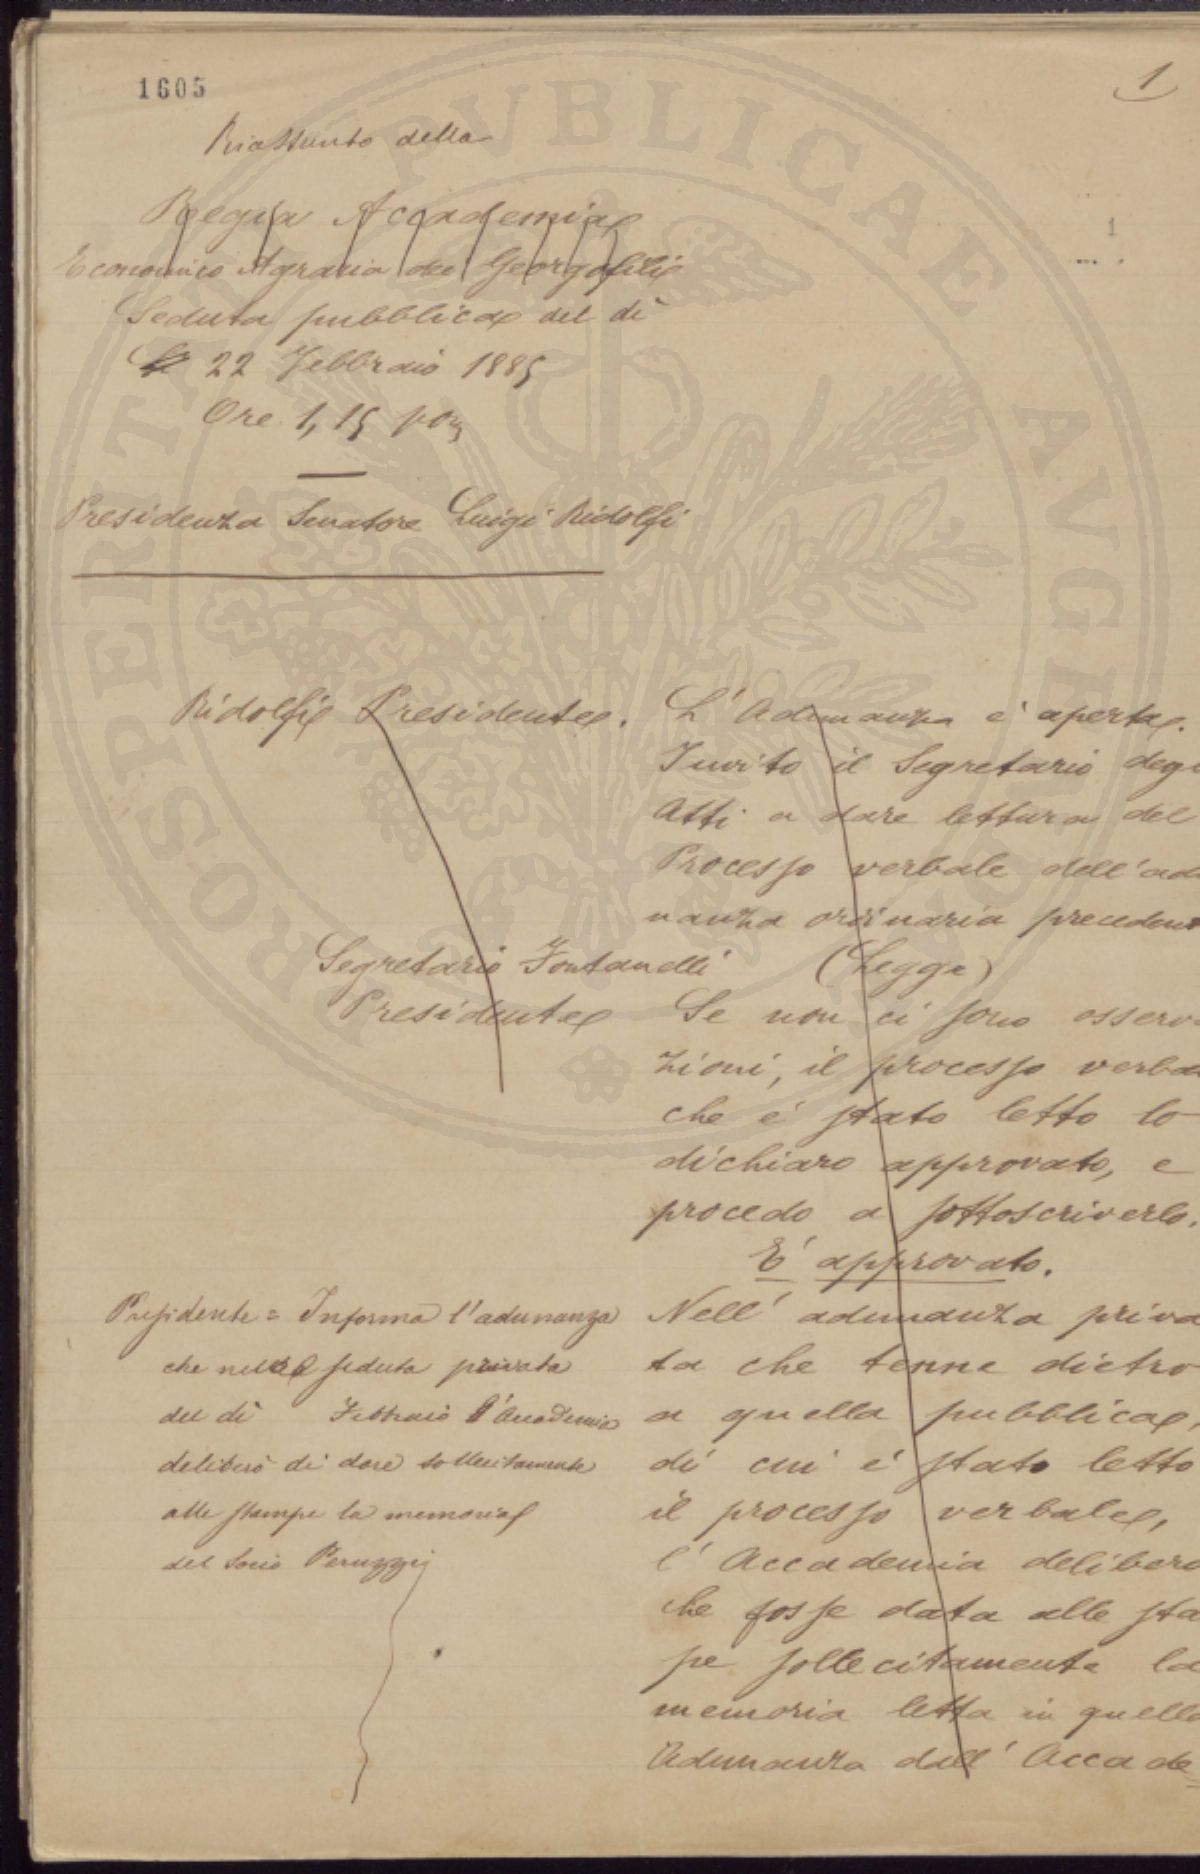 1605
1
Riassunto della
Regia Accademia
Economico Agraria dei Georgofili
Seduta pubblica del dì
22 Febbraio 1885
Ore 1,15 pom
Presidenza Senatore Luigi Ridolfi
1
Ridolfi Presidente.
L'Adunanza è aperta.
Invito il Segretario degi
Atti a dare lettura del
Processo verbale dell'adu
nanza ordinaria precedent
Segretario Fontanelli
(Legge)
Presidente
Se non ci sono osserva
zioni, il processo verbal
che è stato letto lo
dichiaro approvato, e
procedo a sottoscriverlo.
E' approvato.
Presidente = Informa l'adunanza
che nella seduta privata
del dì Febbraio l'Accademia
deliberò di dare sollecitamente
alle stampe la memoria
del Socio Peruzzi
Nell' adunanza priva
ta che tenne dietro
a quella pubblica,
di cui è stato letto
il processo verbale,
l' Accademia deliberò
che fosse data alle sta
pe sollecitamente la
memoria letta in quella
Adunanza dall' Accade
PROSPERITATI PVBLICAE AVGENDAE